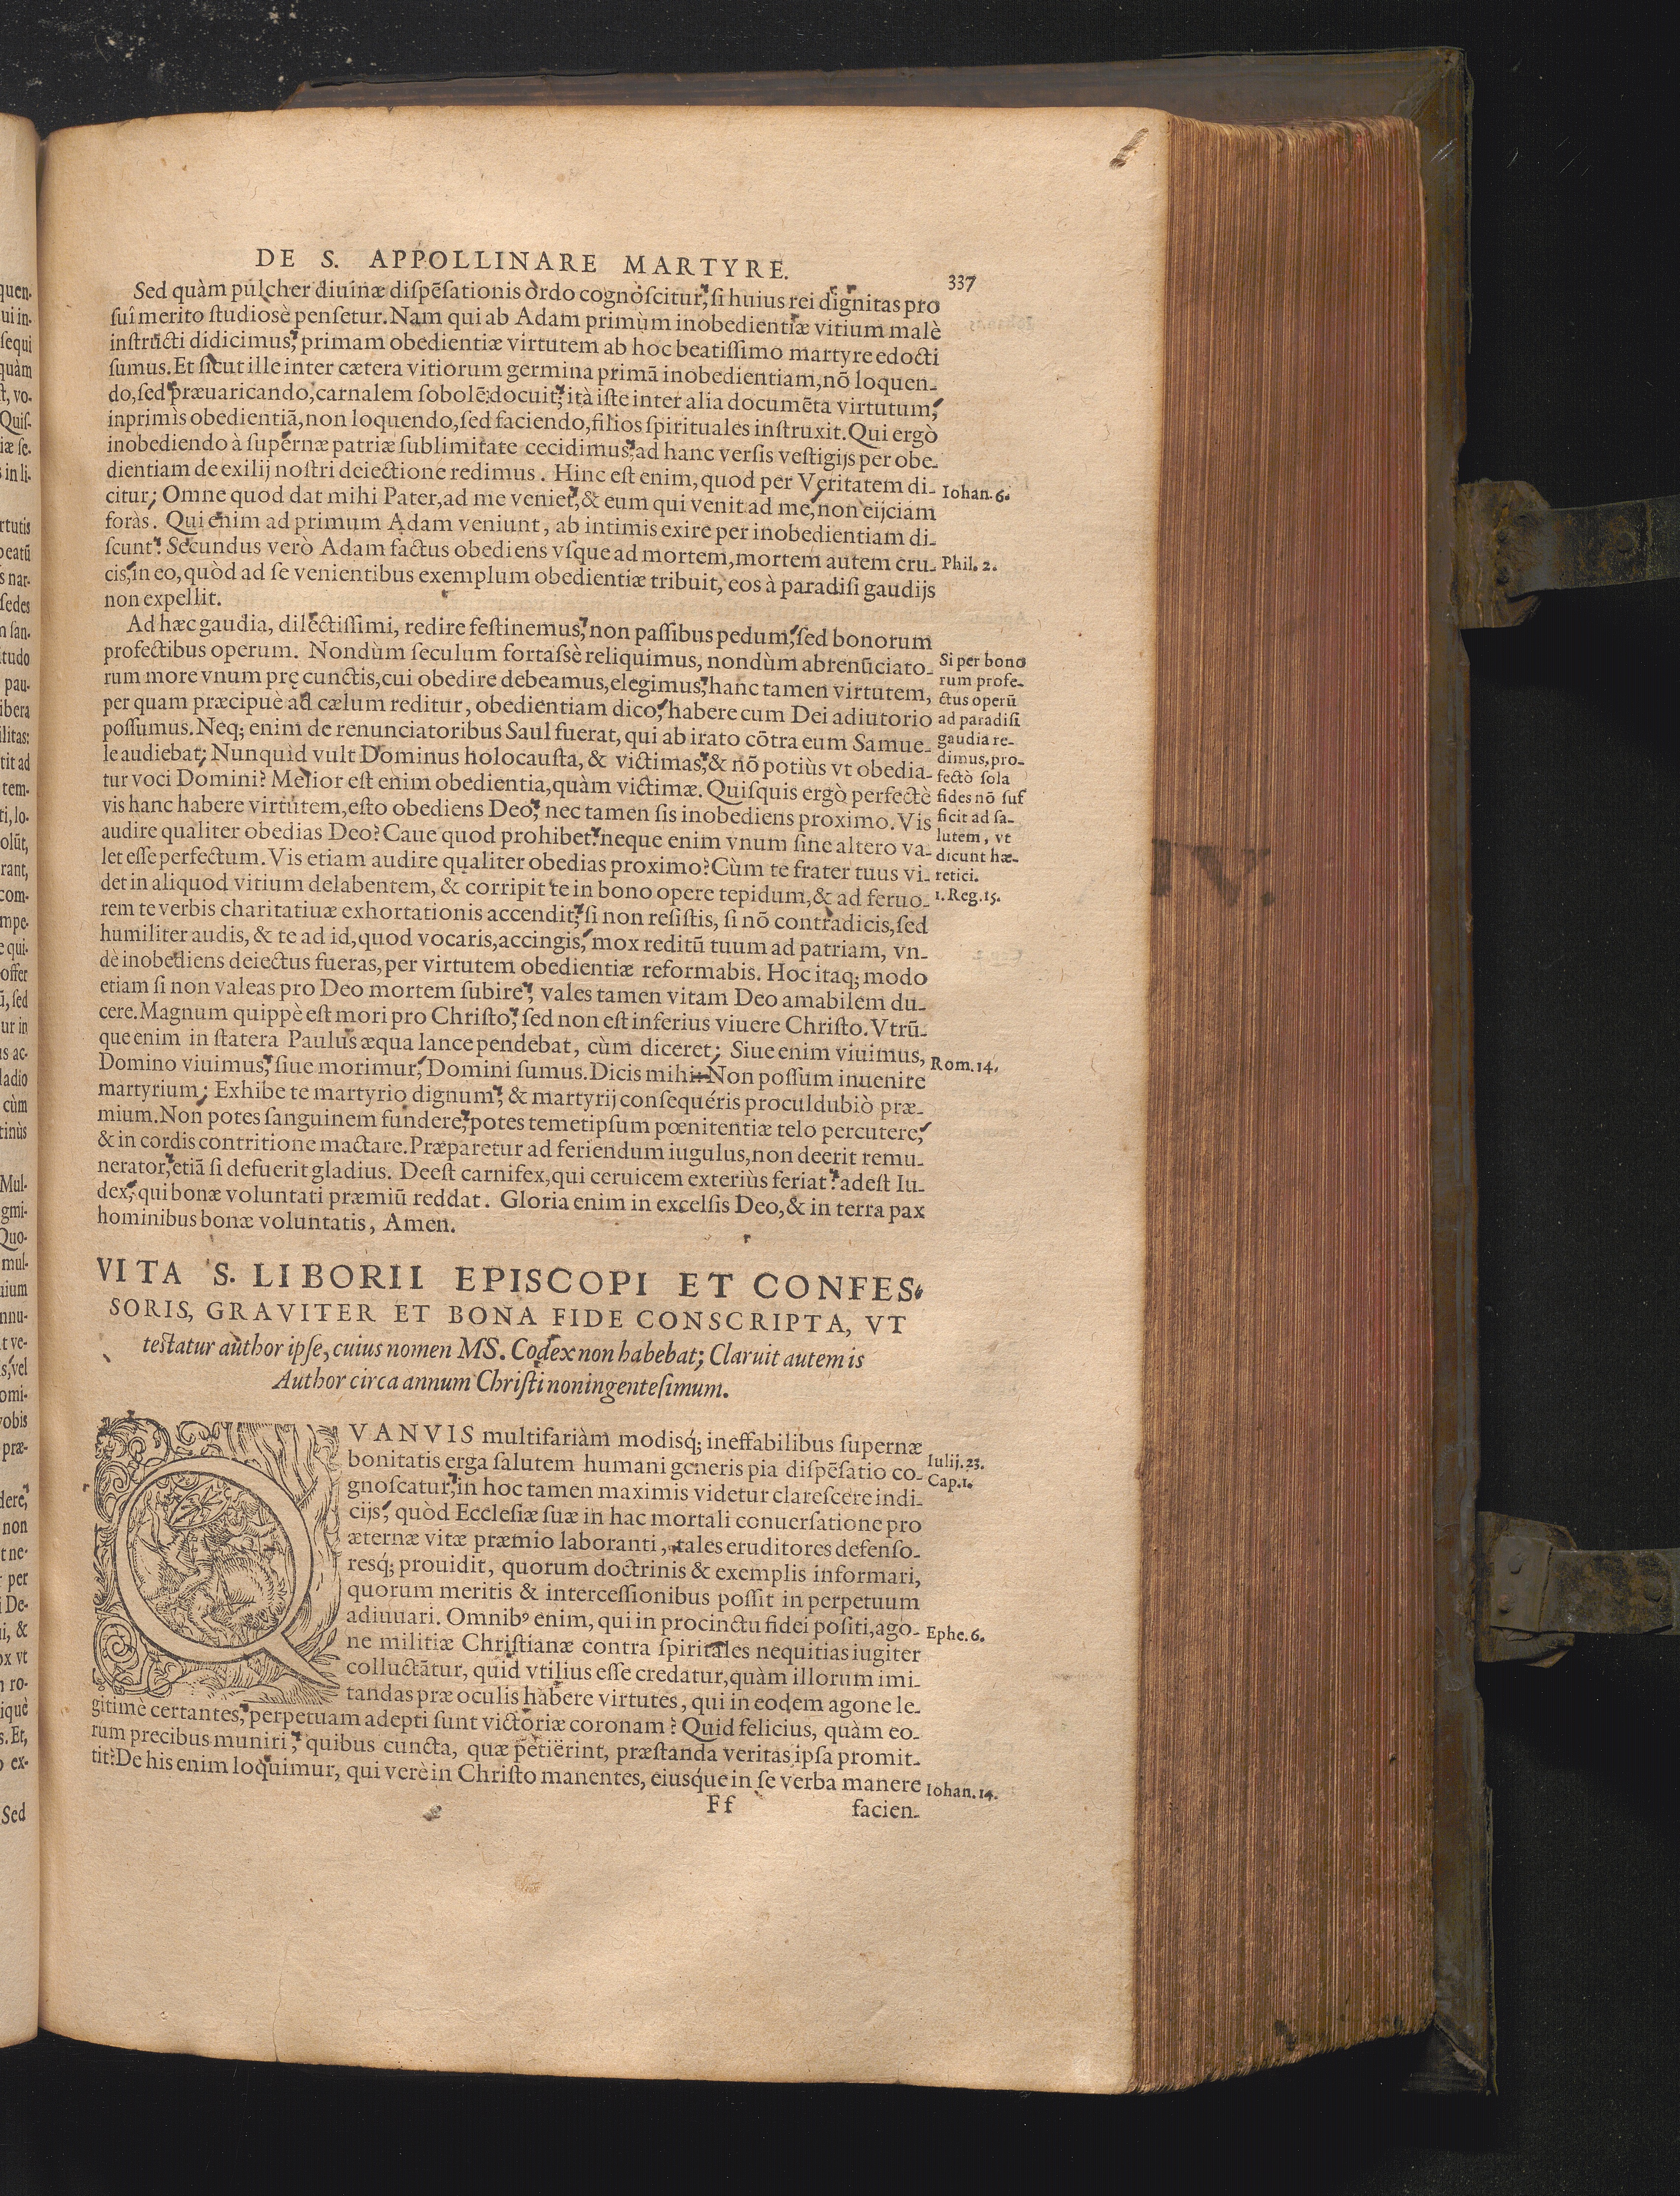 DE S. APPOLLINARE MARTYRE.
337
Sed quàm pulcher diuinæ dispēsationis ordo cognoscitur, si huius rei dignitas pro
sui merito studiosè pensetur. Nam qui ab Adam primùm inobedientiæ vitium malè
instructi didicimus, primam obedientiæ virtutem ab hoc beatissimo martyre edocti
sumus. Et sicut ille inter cætera vitiorum germina primā inobedientiam, nō loquen-
do, sed præuaricando, carnalem sobolē docuit, ità iste inter alia documēta virtutum,
inprimìs obedientiā, non loquendo, sed faciendo, filios spirituales instruxit. Qui ergò
inobediendo à supernæ patriæ sublimitate cecidimus, ad hanc versis vestigijs per obe-
dientiam de exilij nostri deiectione redimus. Hinc est enim, quod per Veritatem di-
citur; Omne quod dat mihi Pater, ad me veniet, & eum qui venit ad me, non eijciam
Iohan. 6.
foràs. Qui enim ad primum Adam veniunt, ab intimis exire per inobedientiam di-
scunt: Secundus verò Adam factus obediens vsque ad mortem, mortem autem cru-
Phil. 2.
cis, in eo, quòd ad se venientibus exemplum obedientiæ tribuit, eos à paradisi gaudijs
non expellit.
Ad hæc gaudia, dilectissimi, redire festinemus, non passibus pedum, sed bonorum
profectibus operum. Nondùm seculum fortassè reliquimus, nondùm abrenūciato-
rum more vnum prę cunctis, cui obedire debeamus, elegimus, hanc tamen virtutem,
per quam præcipuè ad cælum reditur, obedientiam dico, habere cum Dei adiutorio
possumus. Neq; enim de renunciatoribus Saul fuerat, qui ab irato cōtra eum Samue-
le audiebat; Nunquid vult Dominus holocausta, & victimas, & nō potiùs vt obedia-
tur voci Domini? Melior est enim obedientia, quàm victimæ. Quisquis ergò perfectè
vis hanc habere virtutem, esto obediens Deo, nec tamen sis inobediens proximo. Vis
audire qualiter obedias Deo? Caue quod prohibet: neque enim vnum sine altero va-
let esse perfectum. Vis etiam audire qualiter obedias proximo? Cùm te frater tuus vi-
det in aliquod vitium delabentem, & corripit te in bono opere tepidum, & ad feruo-
rem te verbis charitatiuæ exhortationis accendit, si non resistis, si nō contradicis, sed
humiliter audis, & te ad id, quod vocaris, accingis, mox reditū tuum ad patriam, vn-
dè inobediens deiectus fueras, per virtutem obedientiæ reformabis. Hoc itaq; modo
etiam si non valeas pro Deo mortem subire, vales tamen vitam Deo amabilem du-
cere. Magnum quippè est mori pro Christo, sed non est inferius viuere Christo. Vtrū-
que enim in statera Paulus æqua lance pendebat, cùm diceret; Siue enim viuimus,
Domino viuimus, siue morimur, Domini sumus. Dicis mihi: Non possum inuenire
martyrium; Exhibe te martyrio dignum, & martyrij consequéris proculdubiò præ-
mium. Non potes sanguinem fundere, potes temetipsum pœnitentiæ telo percutere,
& in cordis contritione mactare. Præparetur ad feriendum iugulus, non deerit remu-
nerator, etiā si defuerit gladius. Deest carnifex, qui ceruicem exteriùs feriat: adest Iu-
dex, qui bonæ voluntati præmiū reddat. Gloria enim in excelsis Deo, & in terra pax
hominibus bonæ voluntatis, Amen.
Si per bono
rum profe-
ctus operū
ad paradisi
gaudia re-
dimus, pro-
fectò sola
fides nō suf
ficit ad sa-
lutem, vt
dicunt hæ-
retici.
1. Reg. 15.
Rom. 14.
VITA S. LIBORII EPISCOPI ET CONFES-
SORIS, GRAVITER ET BONA FIDE CONSCRIPTA, VT
testatur author ipse, cuius nomen MS. Codex non habebat; Claruit autem is
Author circa annum Christi noningentesimum.
QVANVIS multifariàm modisq; ineffabilibus supernæ
bonitatis erga salutem humani generis pia dispēsatio co-
Iulij. 23.
Cap. 1.
gnoscatur, in hoc tamen maximis videtur clarescere indi-
cijs, quòd Ecclesiæ suæ in hac mortali conuersatione pro
æternæ vitæ præmio laboranti, tales eruditores defenso-
resq; prouidit, quorum doctrinis & exemplis informari,
quorum meritis & intercessionibus possit in perpetuum
adiuuari. Omnibꝰ enim, qui in procinctu fidei positi, ago-
Ephe. 6.
ne militiæ Christianæ contra spiritales nequitias iugiter
colluctātur, quid vtilius esse credatur, quàm illorum imi-
tandas præ oculis habere virtutes, qui in eodem agone le-
gitimè certantes, perpetuam adepti sunt victoriæ coronam? Quid felicius, quàm eo-
rum precibus muniri, quibus cuncta, quæ petierint, præstanda veritas ipsa promit-
tit? De his enim loquimur, qui verè in Christo manentes, eiusq́ue in se verba manere
Iohan. 14.
Ff
facien-
IV.